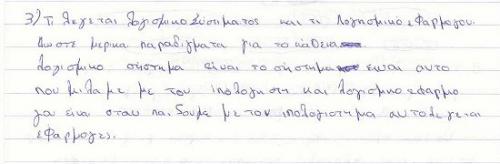 3) Τι λεγεται λογισμικο Σύστηματος και τι λογησμικο εφαρμογου.
Δωστε μερικα παραδιγματα για το κάθενα
λογισμικο σηστημα είναι το σηστημα ειναι αυτο
που μιλαμε με τον ιπολογηστη και λογισμικο εφαρμο
γα είναι οταν παιδουμε με τον ιπολογιστημα αυτο λεγεται
εφαρμογες.